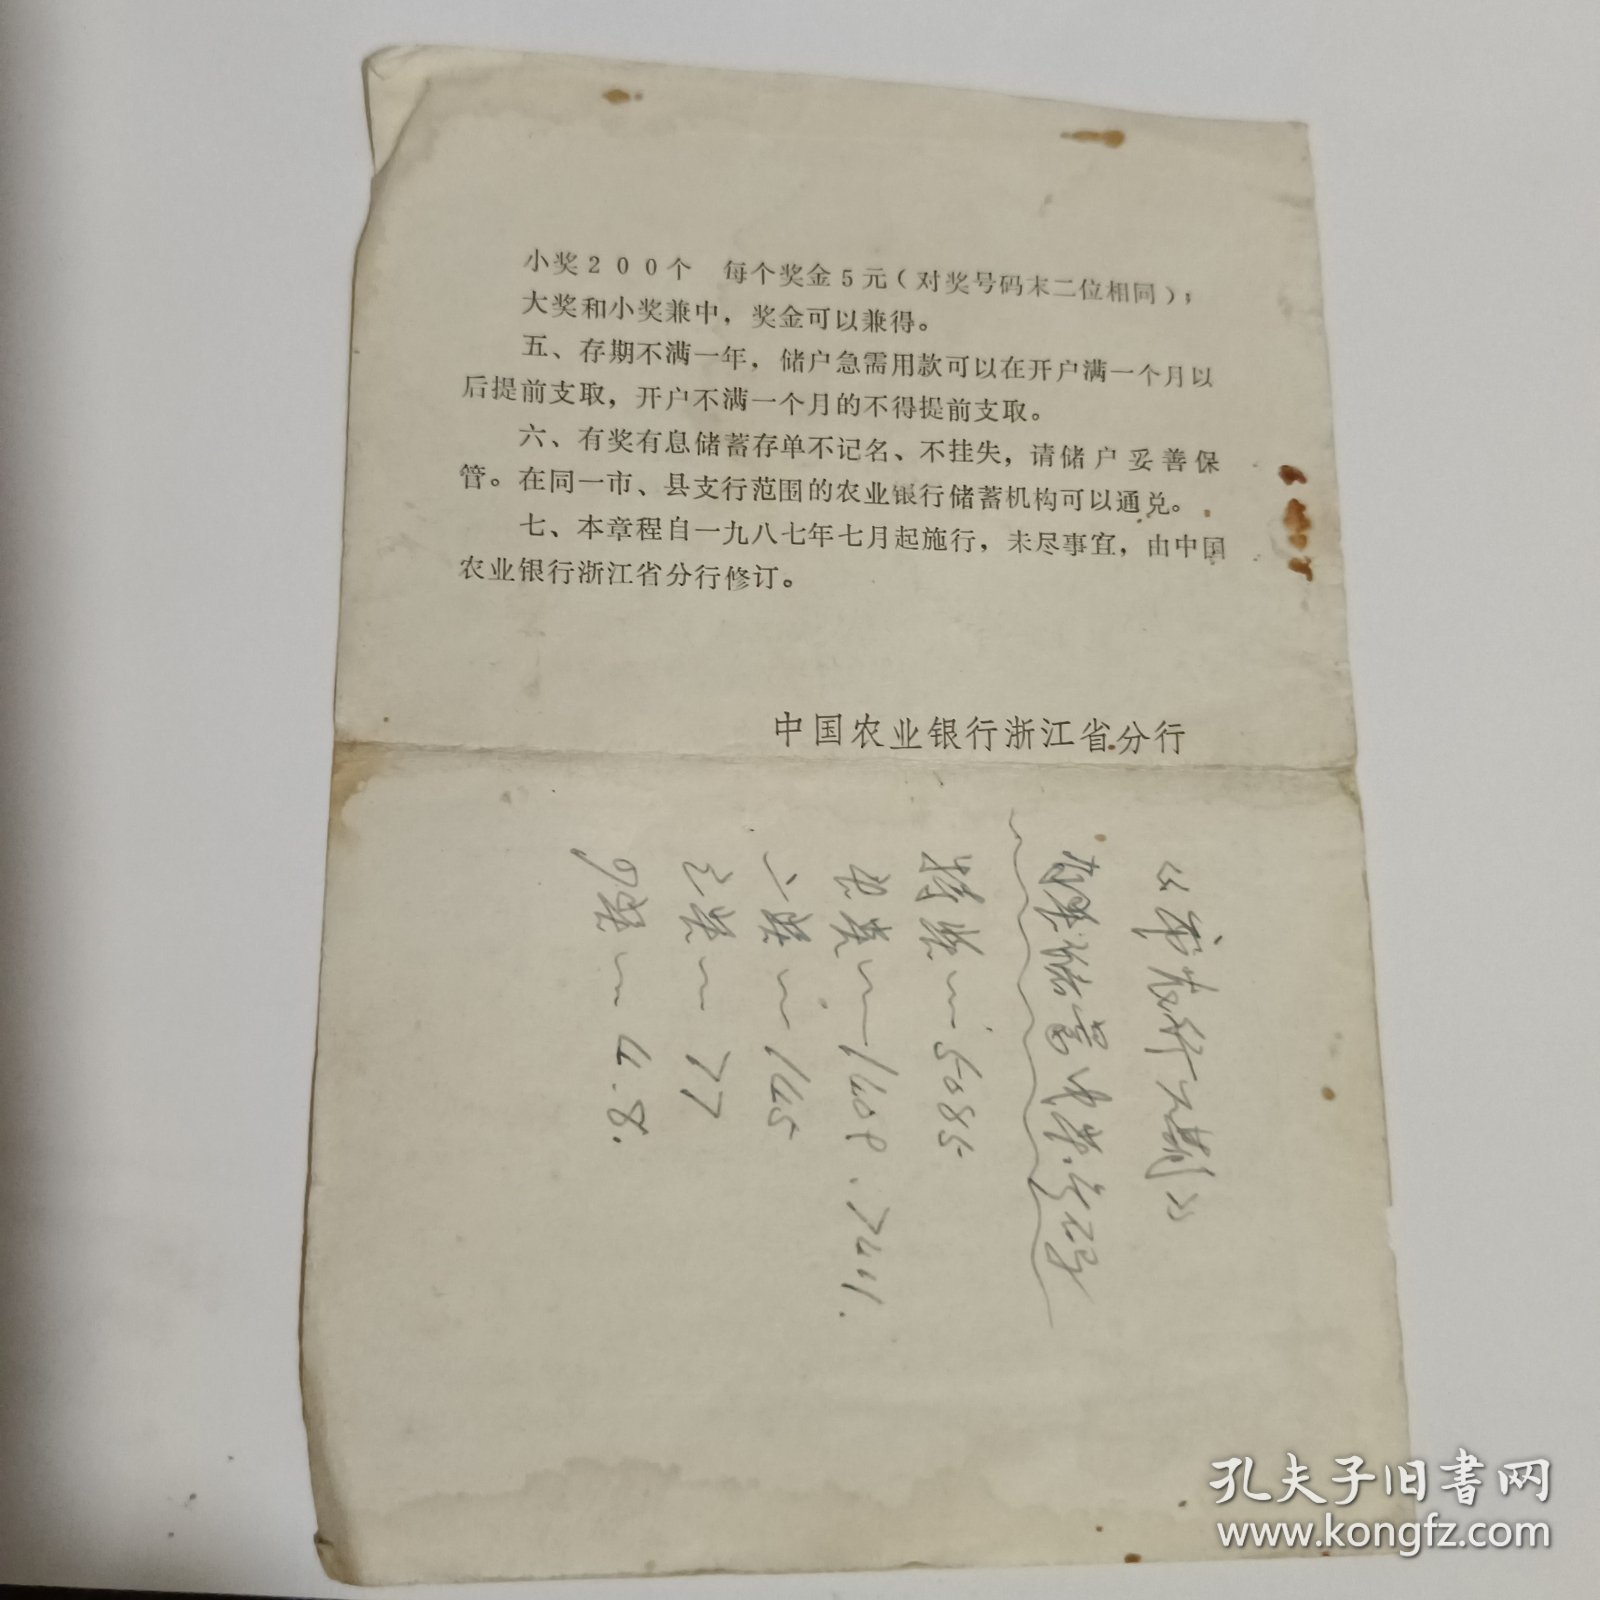 小奖200个 每个奖金5元(对奖号码末二位相同);
大奖和小奖兼中，奖金可以兼得。
五、存期不满一年，储户急需用款可以在开户满一个月以
后提前支取，开户不满一个月的不得提前支取。
六、有奖有息储蓄存单不记名、不挂失，请储户妥善保
管。在同一市、县支行范围的农业银行储蓄机构可以通兑。
七、本章程自一九八七年七月起施行，未尽事宜，由中国
农业银行浙江省分行修订。
中国农业银行浙江省分行
有奖储蓄中奖号码
特奖 5085
奖 7411.
奖 145
三奖 77
奖 4.8.
孔夫子旧书网
www.kongfz.com